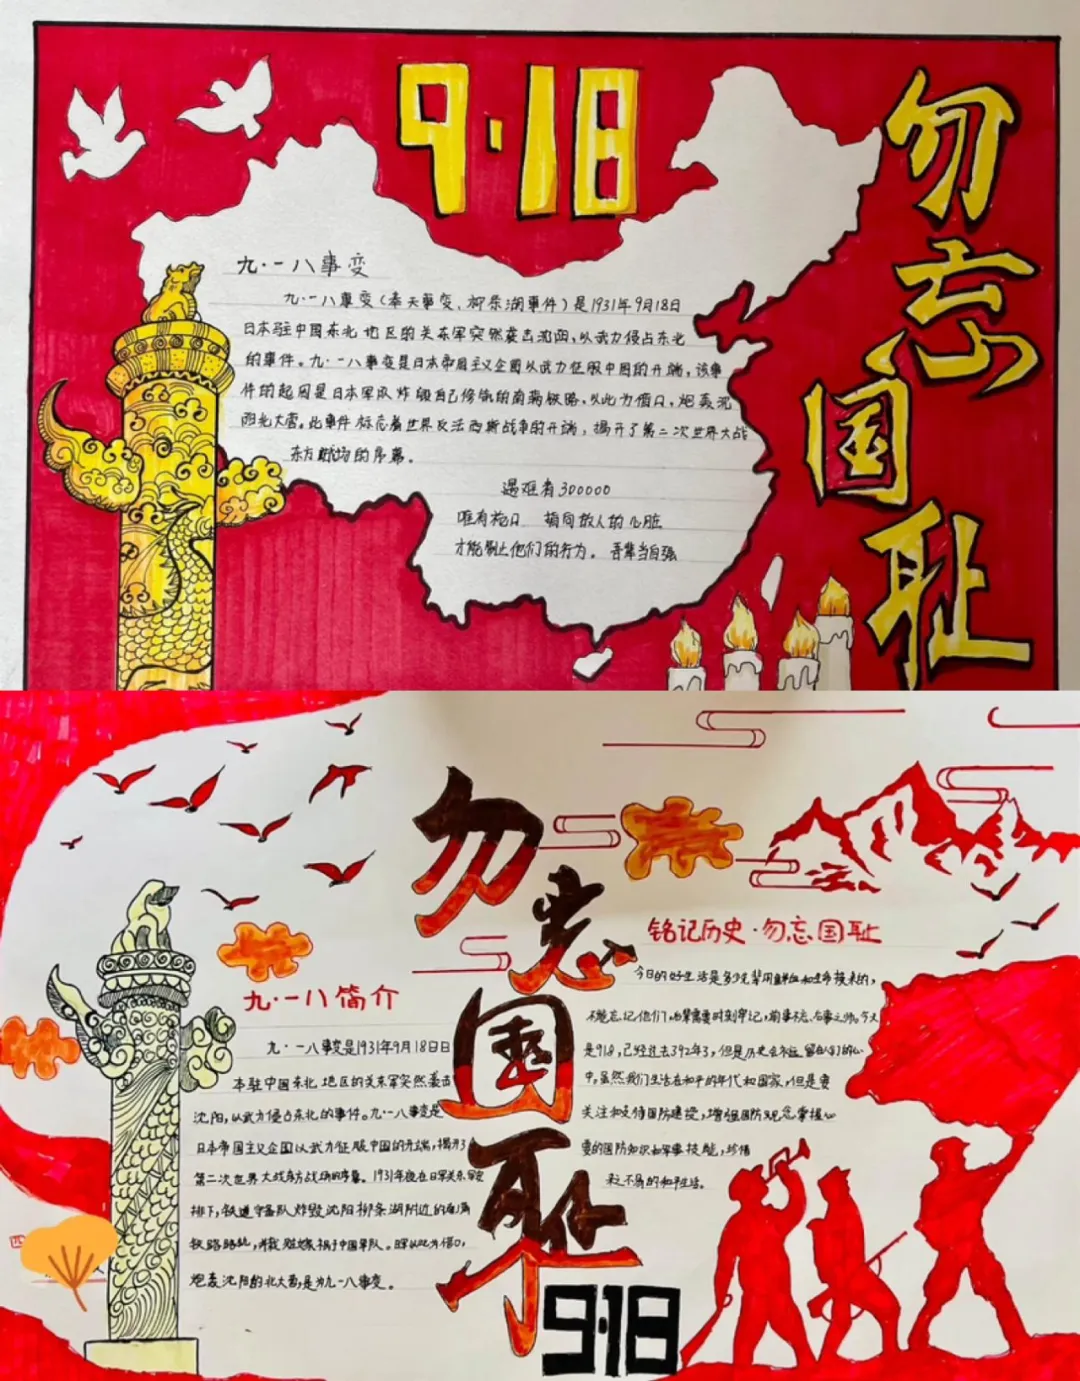 9·18
勿忘国耻
九·一八事变
九·一八事变(奉天事变、柳条湖事件)是1931年9月18日
日本驻中国东北地区的关东军突然袭击沈阳,以武力侵占东北
的事件。九·一八事变是日本帝国主义企图以武力征服中国的开端,该事
件的起因是日本军队炸毁自己修筑的南满铁路,以此为借口,炮轰沈
阳北大营。此事件标志着世界反法西斯战争的开端,揭开了第二次世界大战
东方战场的序幕。
遇难者300000
唯有枪口 指向敌人的心脏
才能制止他们的行为。吾辈当自强
勿忘国耻
9·18
九·一八简介
九·一八事变是1931年9月18日日
本驻中国东北地区的关东军突然袭击
沈阳,以武力侵占东北的事件。九·一八事变是
日本帝国主义企图以武力征服中国的开端,揭开了
第二次世界大战东方战场的序幕。1931年夜在日军关东军安
排下,铁道守备队炸毁沈阳柳条湖附近的南满
铁路路轨,并栽赃嫁祸于中国军队。日军以此为借口,
炮轰沈阳的北大营,是为九一八事变。
铭记历史·勿忘国耻
今日的好生活是多少先辈用鲜血和生命换来的,
不能忘记他们,吾辈需要时刻牢记,前事不忘,后事之师。今天
是918,已经过去392年3,但是历史会永远留在人们的心
中。虽然我们生活在和平的年代和国家,但是要
关注和支持国防建设,增强国防观念掌握必
要的国防知识和军事技能,珍惜
来之不易的和平生活。